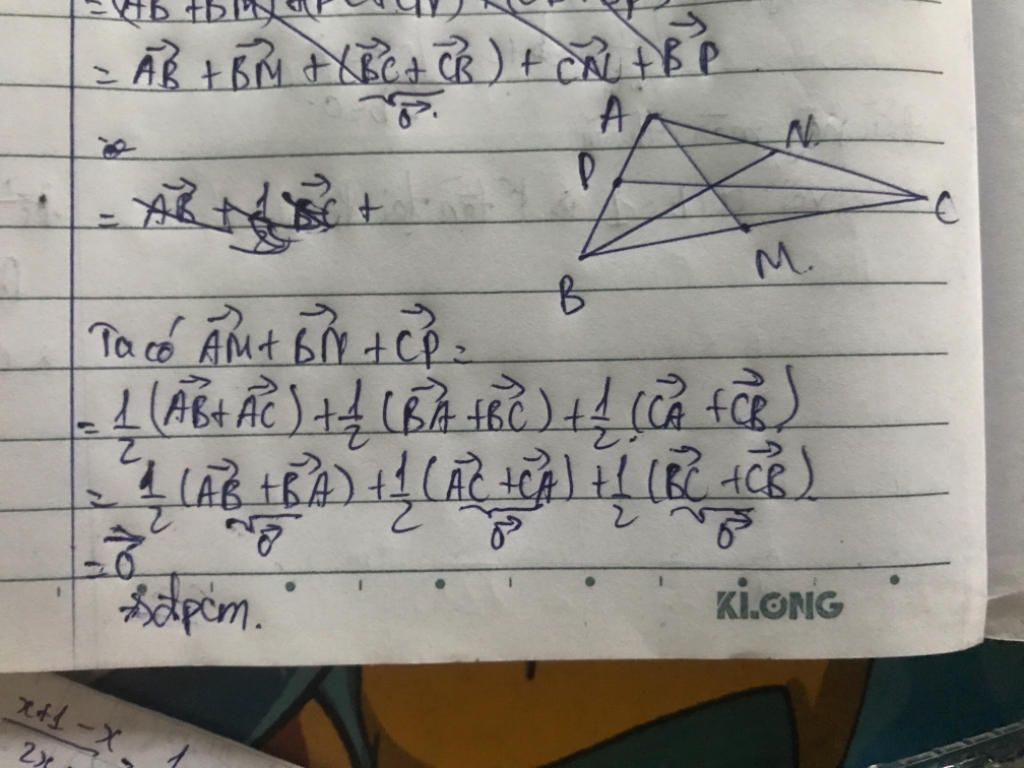 = \overrightarrow{AB} + \overrightarrow{BM} + (\overrightarrow{BC} + \overrightarrow{CB}) + \overrightarrow{CN} + \overrightarrow{BP}
\vec{0}.
A
N.
P
C
= \overrightarrow{AB} + \frac{1}{2} \overrightarrow{BC} +
M.
B
Ta có \overrightarrow{AM} + \overrightarrow{BN} + \overrightarrow{CP} =
= \frac{1}{2} (\overrightarrow{AB} + \overrightarrow{AC}) + \frac{1}{2} (\overrightarrow{BA} + \overrightarrow{BC}) + \frac{1}{2} (\overrightarrow{CA} + \overrightarrow{CB})
= \frac{1}{2} (\overrightarrow{AB} + \overrightarrow{BA}) + \frac{1}{2} (\overrightarrow{AC} + \overrightarrow{CA}) + \frac{1}{2} (\overrightarrow{BC} + \overrightarrow{CB})
\vec{0} \vec{0} \vec{0}
= \vec{0}
đpcm.
KLONG
x+1-x
2x
1